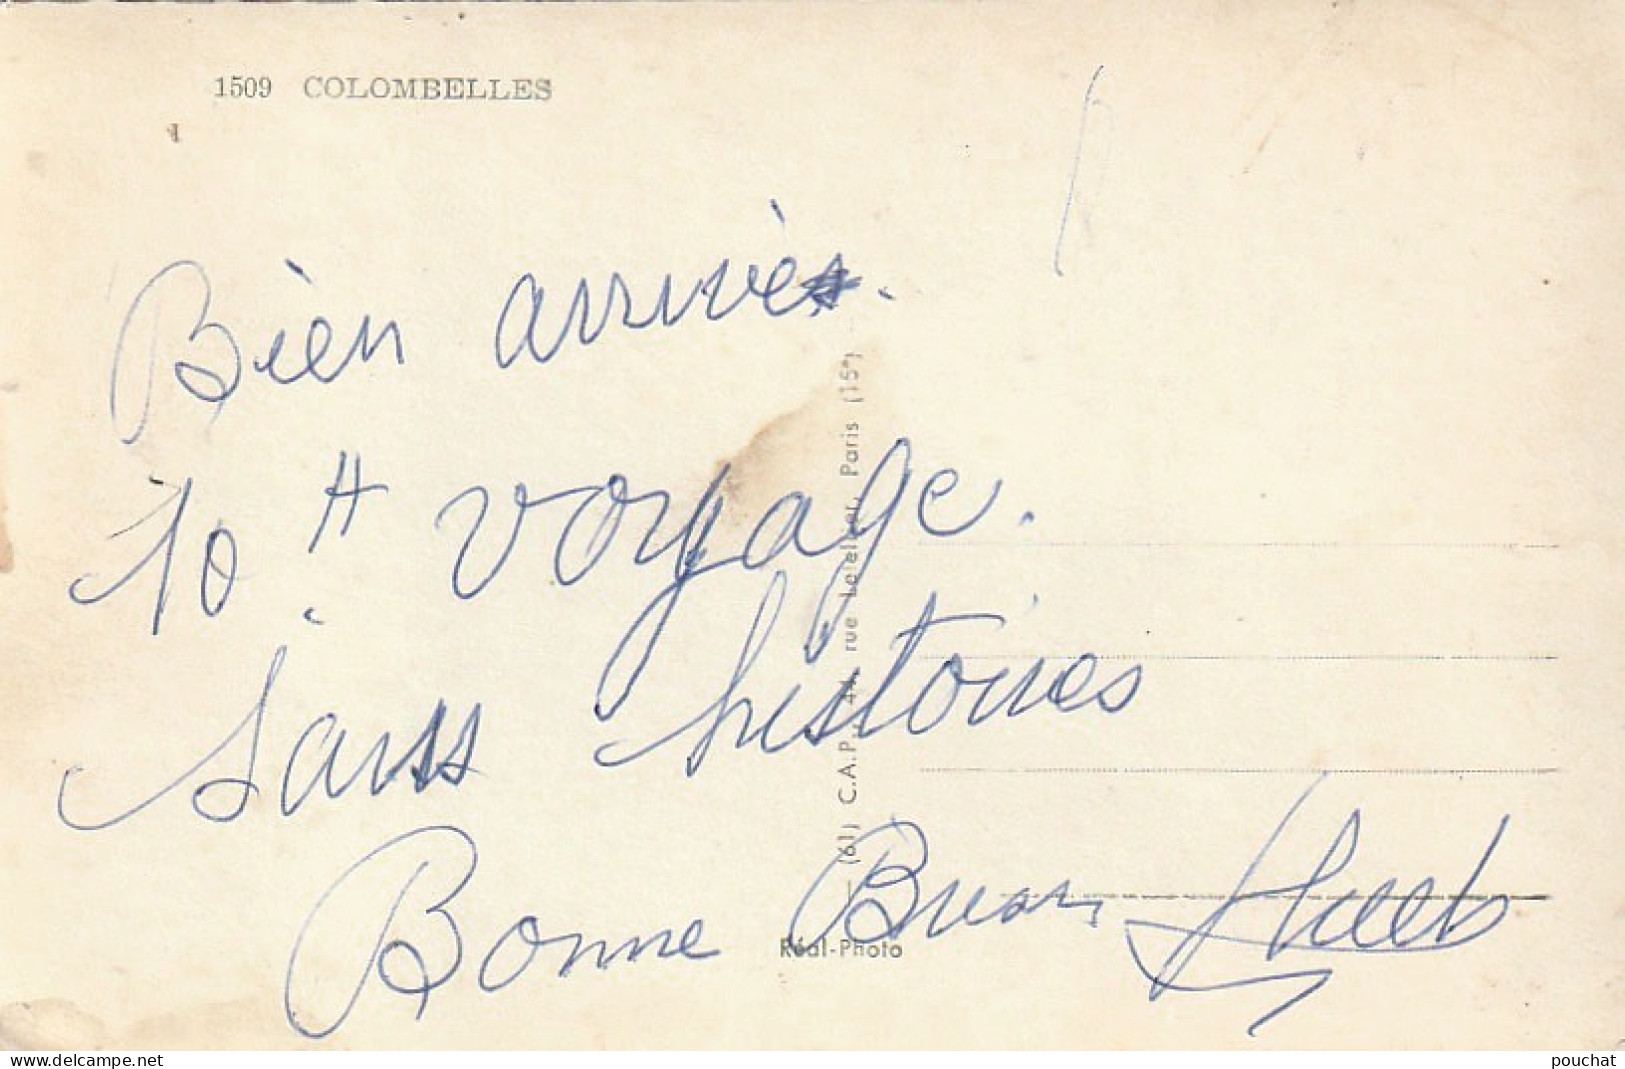 1509 COLOMBELLES
Bien arrivés.
voyage.
sans histoires
Bonne
(61) C.A.P. - 44, rue Letellier, Paris (15e)
Réal-Photo
www.delcampe.net
pouchat